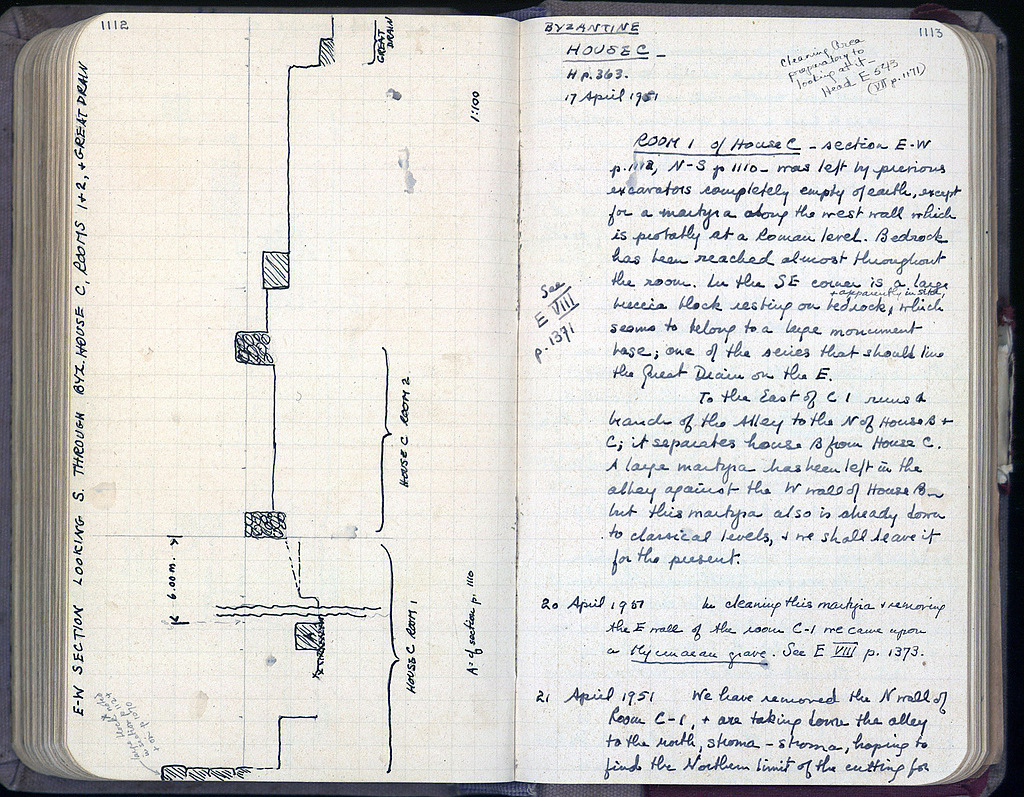 1112
E-W SECTION LOOKING S. THROUGH BYZ. HOUSE C, ROOMS 1+2, + GREAT DRAIN
GREAT
DRAIN
1:100
HOUSE C ROOM 2
6.00 m.
HOUSE C ROOM 1
A: cf section p. 1110
large block noted
w section p 1124
+ on p 1070
1113
BYZANTINE
HOUSE C -
H p. 363.
17 April 1951
Cleaning Area
preparatory to
looking at it -
Head E 543
(VII p. 1171)
ROOM 1 of House C - section E-W
p. 1112, N-S p 1110 - was left by previous
excavators completely empty of earth, except
for a martyra along the west wall which
is probably at a Roman level. Bedrock
has been reached almost throughout
the room. In the SE corner is a large
+ apparently in situ,
breccia block resting on bedrock, which
seems to belong to a large monument
base; one of the series that should line
the Great Drain on the E.
See
E VIII
p. 1371
To the East of C 1 runs a
branch of the Alley to the N of House B +
C; it separates house B from House C.
A large martyra has been left in the
alley against the W wall of House B -
but this martyra also is already down
to classical levels, + we shall leave it
for the present.
20 April 1951 In cleaning this martyra + removing
the E wall of the room C-1 we came upon
a Mycenaean grave. See E VIII p. 1373.
21 April 1951 We have removed the N wall of
Room C-1, + are taking down the alley
to the north, stroma - stroma, hoping to
find the Northern limit of the cutting for